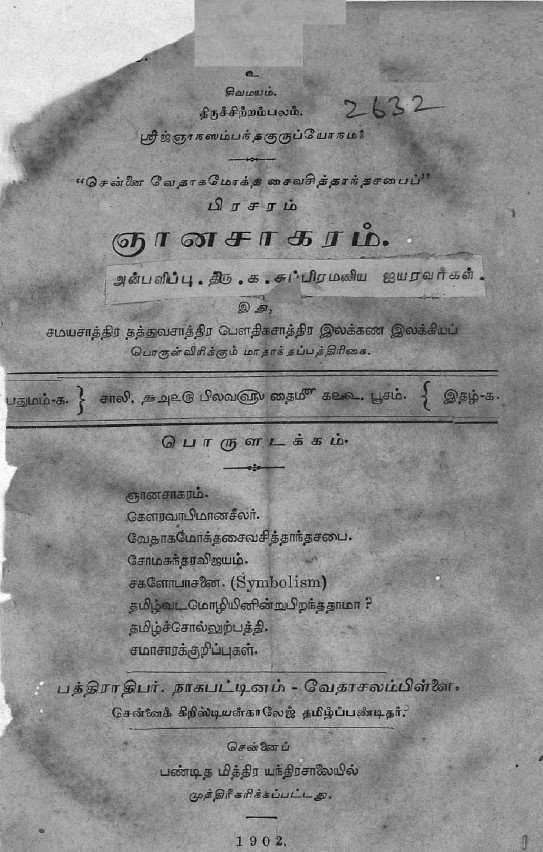 உ
சிவமயம்.
திருச்சிற்றம்பலம்.
2632
ஸ்ரீஜ்ஞாநஸம்பந்தகுருப்யோநம:
"சென்னை வேதாகமோக்த சைவசித்தாந்தசபைப்"
பிரசரம்
ஞானசாகரம்.
அன்பளிப்பு. திரு. க. சுப்பிரமணிய ஐயரவர்கள்.
இது,
சமயசாத்திர தத்துவசாத்திர பௌதிகசாத்திர இலக்கண இலக்கியப்
பொருள்விரிக்கும் மாதாந்தப்பத்திரிகை.
பதுமம்-க. } சாலி, பிலவ௵ தை௴ பூசம். { இதழ்-க.
பொருளடக்கம்.
ஞானசாகரம்.
கௌரவாபிமானசீலர்.
வேதாகமோக்தசைவசித்தாந்தசபை.
சோமசுந்தரவிஜயம்.
சகளோபாசனை. (Symbolism)
தமிழ்வடமொழியினின்றுபிறந்ததாமா?
தமிழ்ச்சொல்லுற்பத்தி.
சமாசாரக்குறிப்புகள்.
பத்திராதிபர். நாகபட்டினம் - வேதாசலம்பிள்ளை,
சென்னைக் கிறிஸ்டியன்காலேஜ் தமிழ்ப்பண்டிதர்.
சென்னைப்
பண்டித மித்திர யந்திரசாலையில்
முத்திரீகரிக்கப்பட்டது.
1902.